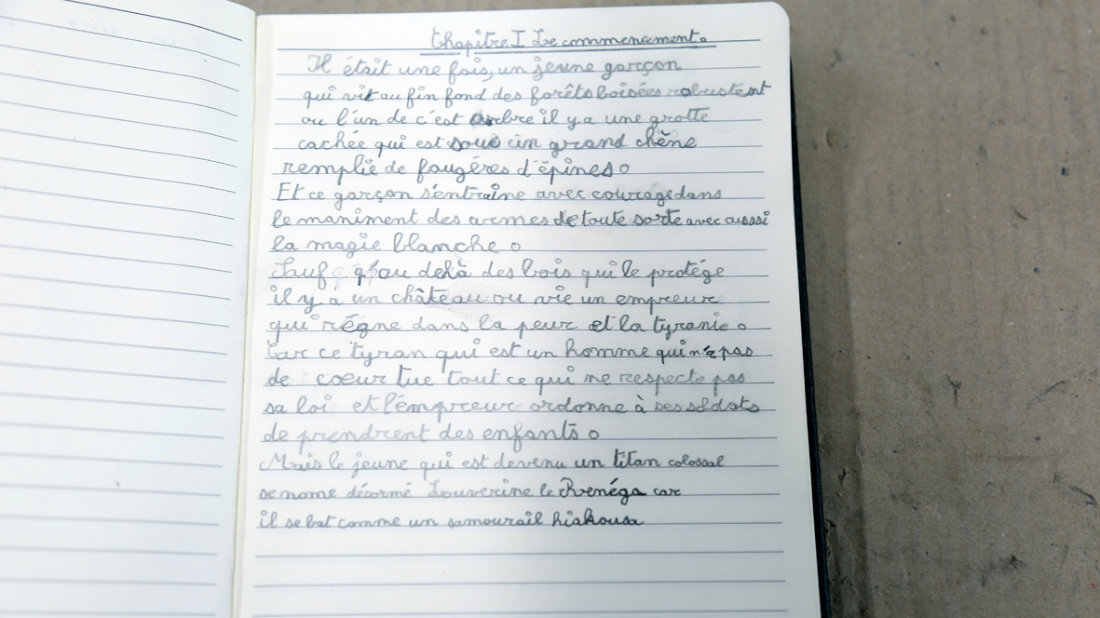 Chapitre I Le commencement.
Il était une fois, un jeune garçon
qui vit au fin fond des forêts boisées robustent
ou l'un de c'est arbre il y a une grotte
cachée qui est sous un grand chêne
remplie de faugères d'épines.
Et ce garçon s'entraîne avec courage dans
le maniment des armes de toute sorte avec ausssi
la magie blanche.
Sauf qu'au delà des bois qui le protége
il y a un château ou vie un empreur
qui régne dans la peur et la tyranie.
Car ce tyran qui est un homme qui n'a pas
de coeur tue tout ce qui ne respecte pas
sa loi et l'empreur ordonne à ses soldats
de prendrent des enfants.
Mais le jeune qui est devenu un titan colossal
se nome décormé Louverine le Renéga car
il se bat comme un samourail hiakousa